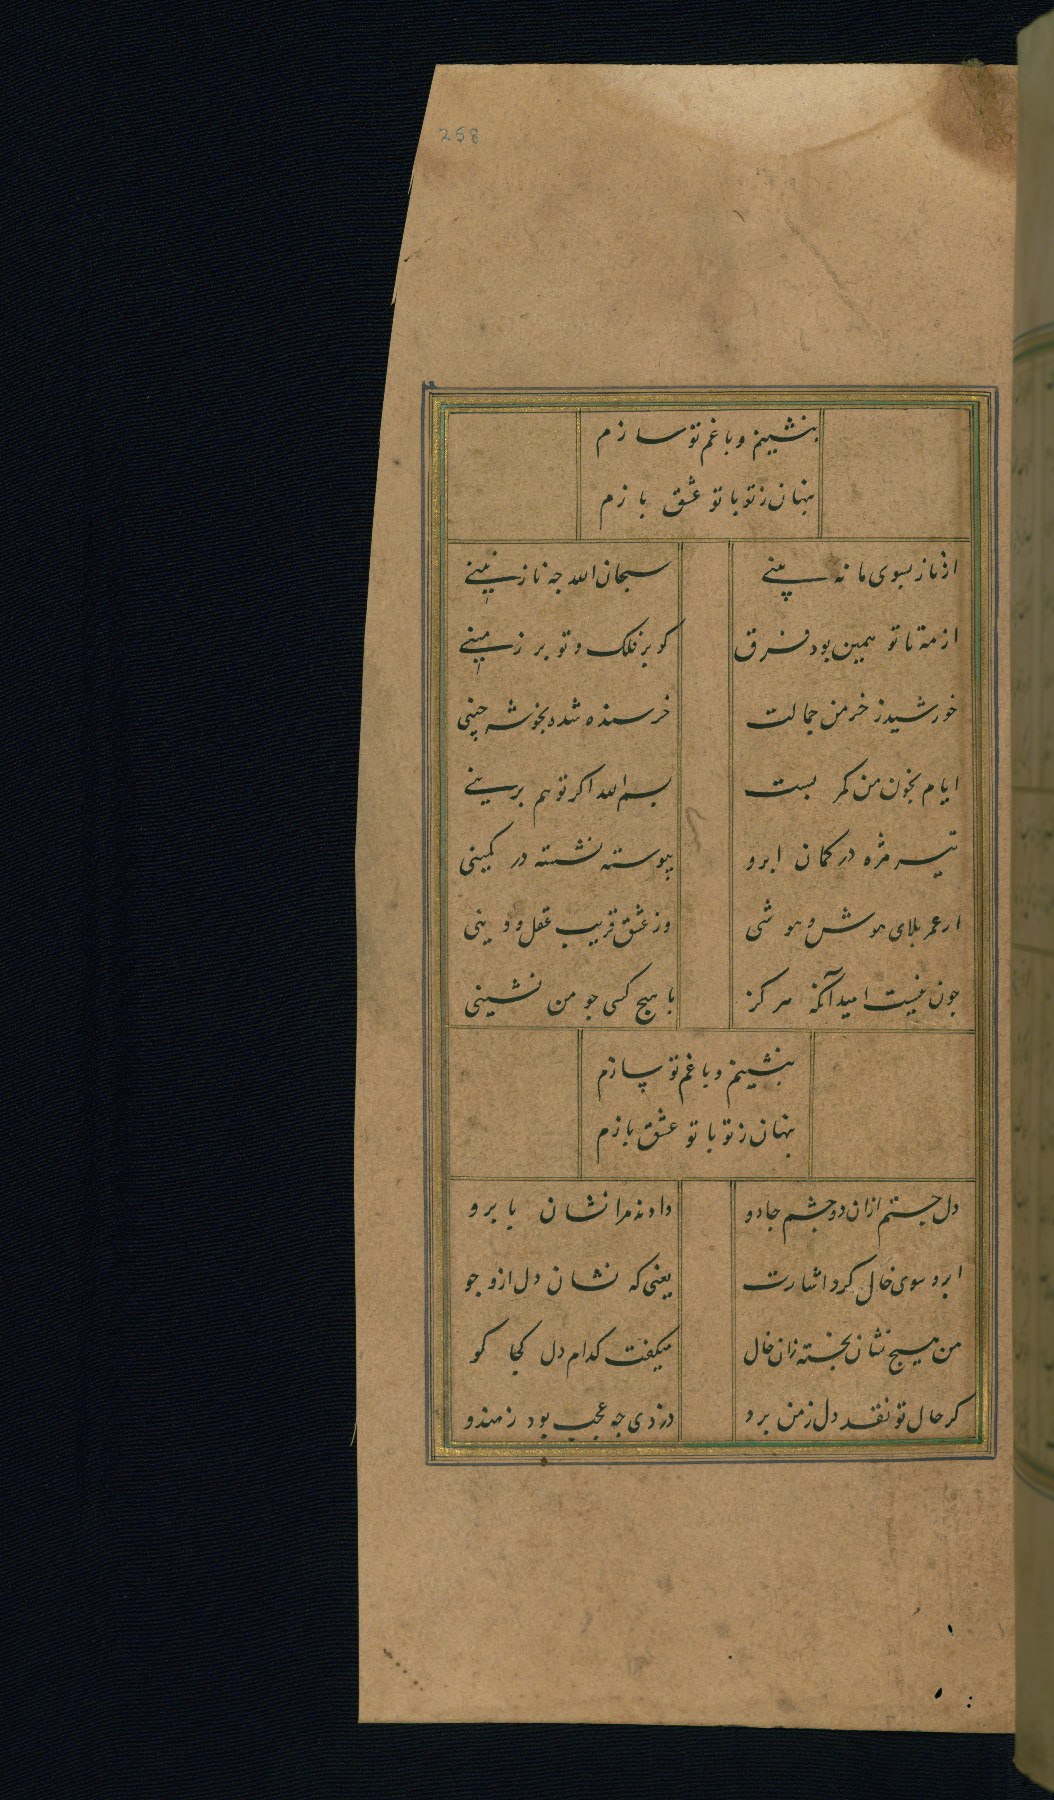 258
بنشینم و با غم تو سازم
پنهان ز تو با تو عشق بازم
از ناز بسوی ما نه بینی سبحان الله چه نازنینی
از مه تا تو همین بود فرق کو بر فلک و تو بر زمینی
خورشید ز خرمن جمالت خرسند شده بخوشه چینی
ایام بخون من کمر بست بسم الله اگر تو هم برینی
تیر مژه در کمان ابرو پیوسته نشسته در کمینی
از عمر بلای هوش و هوشی وز عشق فریب عقل و دینی
چون نیست امید آنکه هرگز با هیچ کسی چو من نشینی
بنشینم و با غم تو سازم
پنهان ز تو با تو عشق بازم
دل جستم ازان دو چشم جادو دادند مرا نشان بابرو
ابرو سوی خال کرد اشارت یعنی که نشان دل ازو جو
من هیچ نشان نجسته زان خال میگفت کدام دل کجا کو
گر خال تو نقد دل ز من برد دزدی چه عجب بود ز هندو